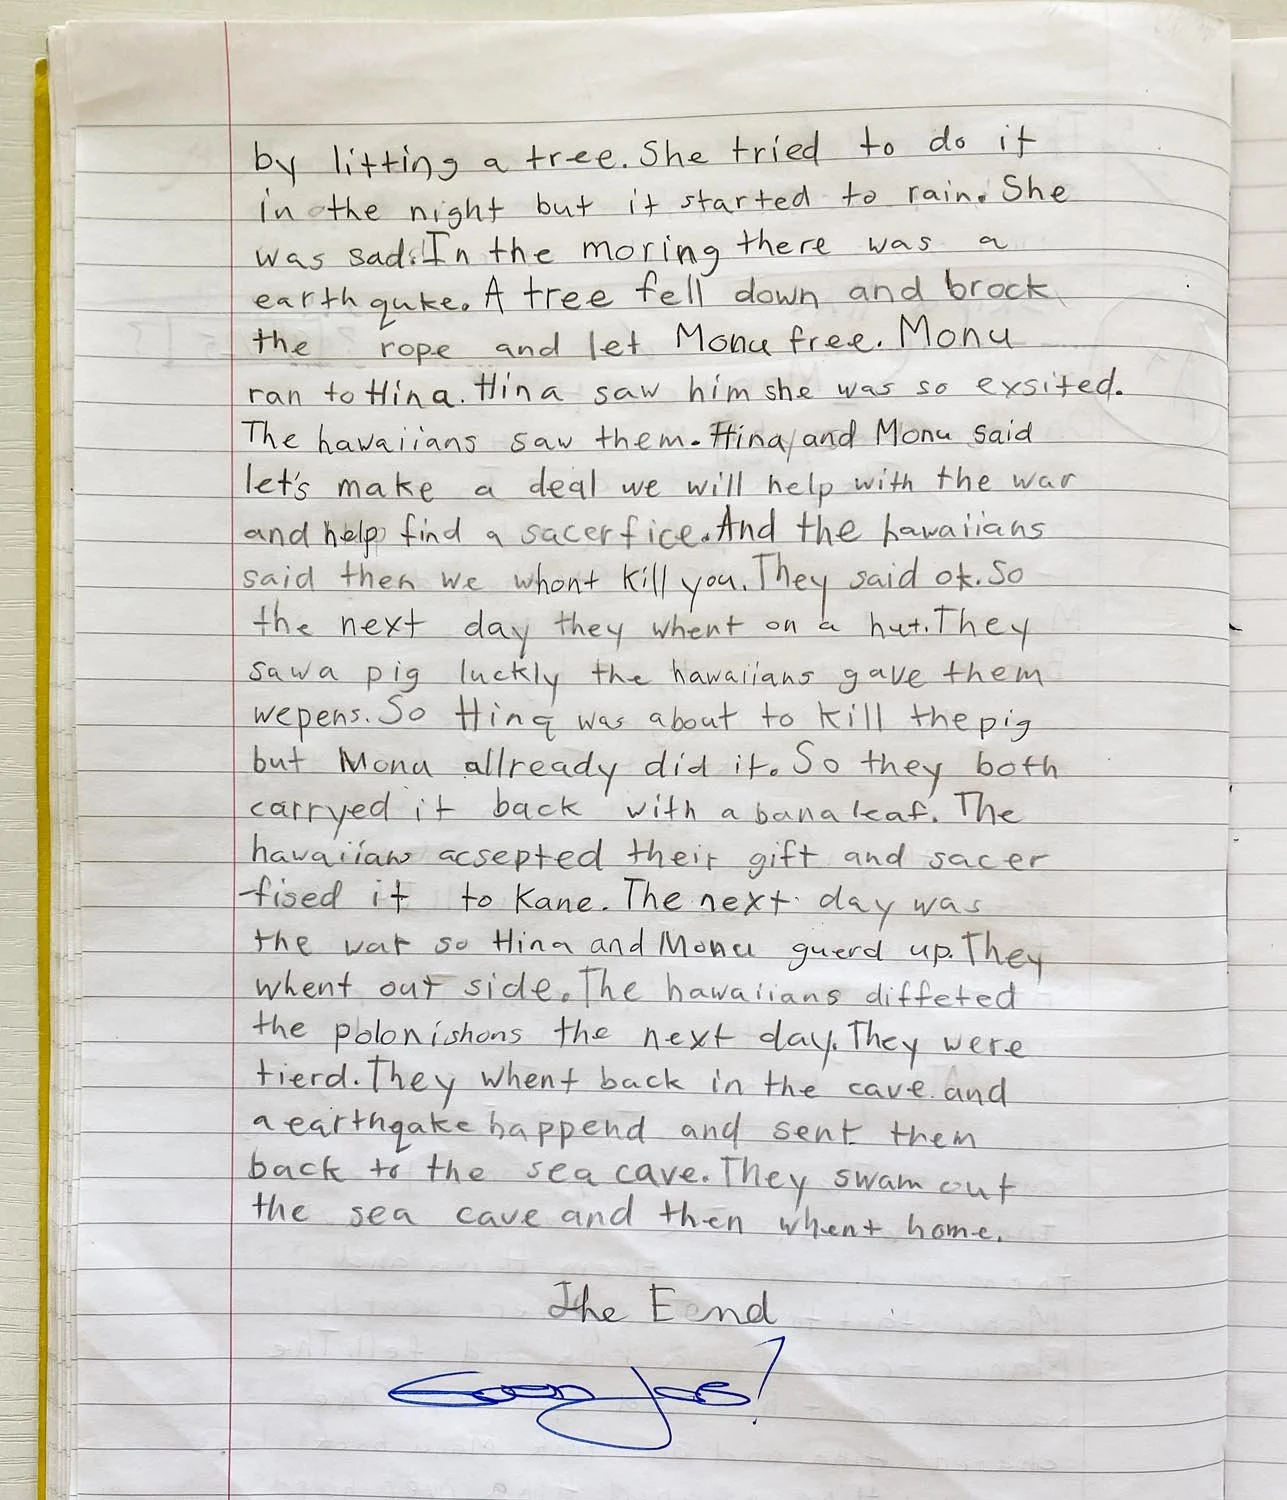 by litting a tree. She tried to do it
in the night but it started to rain. She
was sad. In the moring there was a
earthquke. A tree fell down and brock
the rope and let Monu free. Monu
ran to Hina. Hina saw him she was so exsited.
The hawaiians saw them. Hina and Monu said
let's make a deal we will help with the war
and help find a sacerfice. And the hawaiians
said then we whont kill you. They said ok. So
the next day they whent on a hut. They
saw a pig luckly the hawaiians gave them
wepens. So Hina was about to kill the pig
but Monu allready did it. So they both
carryed it back with a bana leaf. The
hawaiians acsepted their gift and sacer
-fised it to Kane. The next day was
the war so Hina and Monu guerd up. They
whent out side. The hawaiians diffeted
the polonishons the next day. They were
tierd. They whent back in the cave and
a earthqake happend and sent them
back to the sea cave. They swam out
the sea cave and then whent home.
The Eend
Good Job!